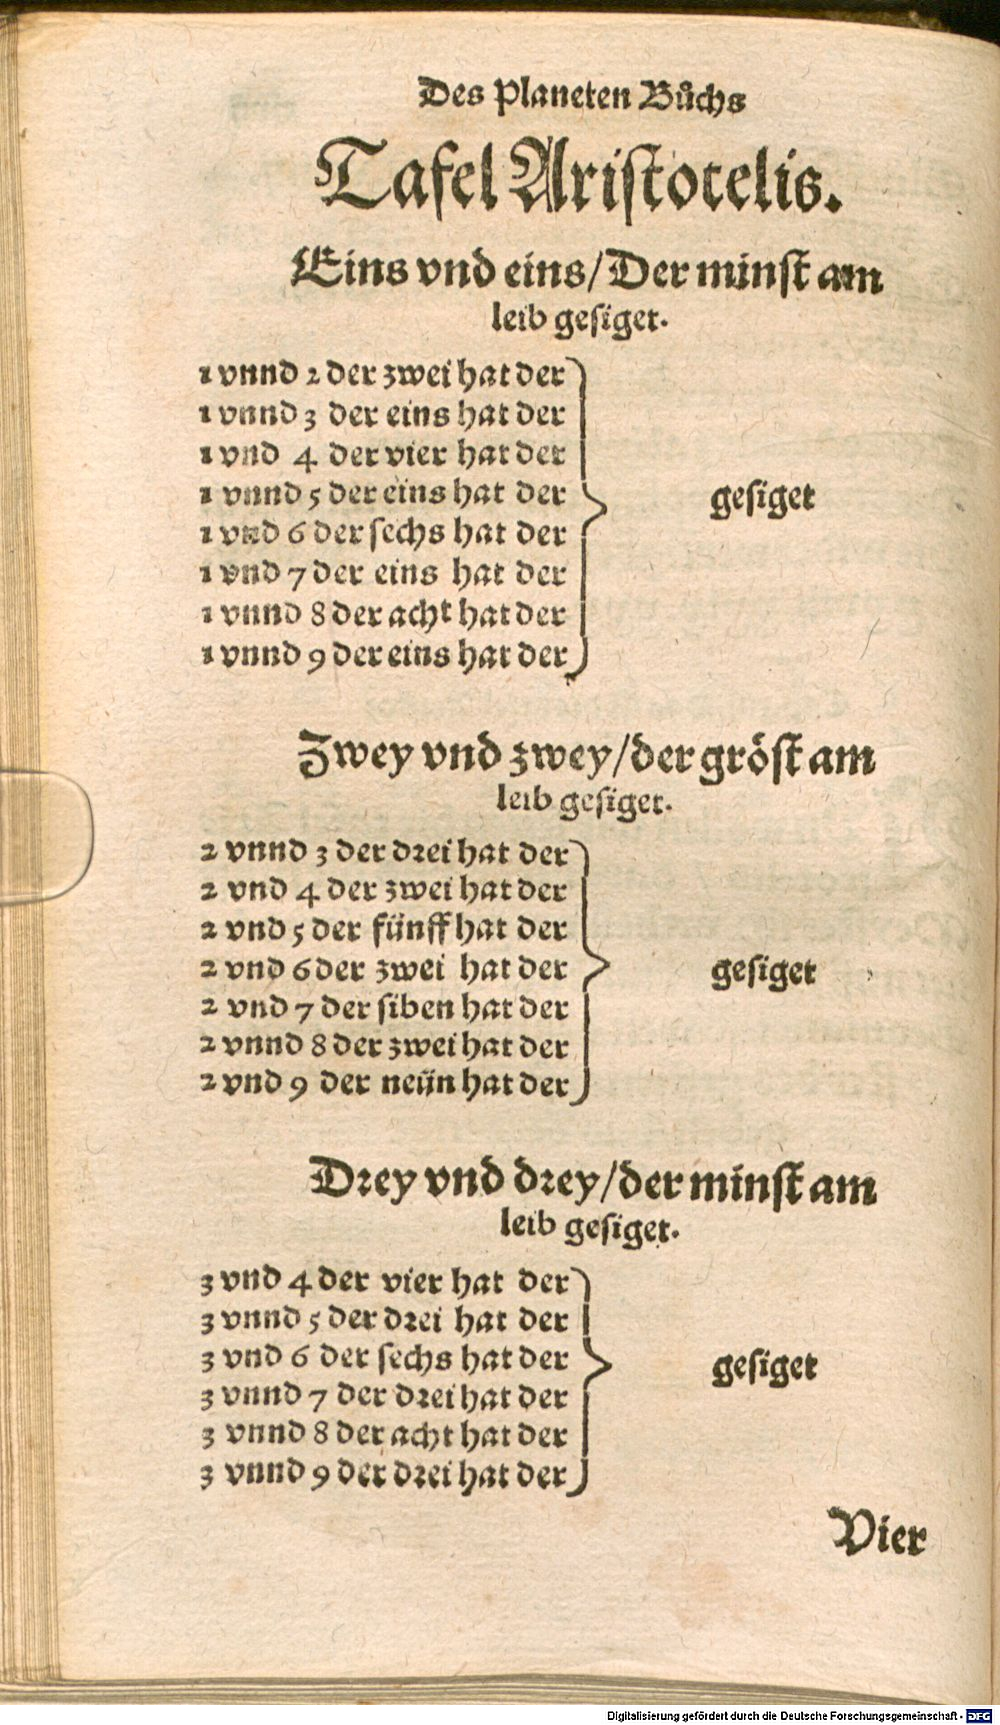 Des Planeten Bůchs
Tafel Aristotelis.
Eins vnd eins/Der minst am
leib gesiget.
1 vnnd 2 der zwei hat der
1 vnnd 3 der eins hat der
1 vnd 4 der vier hat der
1 vnnd 5 der eins hat der
gesiget
1 vnd 6 der sechs hat der
1 vnd 7 der eins hat der
1 vnnd 8 der acht hat der
1 vnnd 9 der eins hat der
Zwey vnd zwey/der gröst am
leib gesiget.
2 vnnd 3 der drei hat der
2 vnd 4 der zwei hat der
2 vnd 5 der fünff hat der
2 vnd 6 der zwei hat der
gesiget
2 vnd 7 der siben hat der
2 vnnd 8 der zwei hat der
2 vnd 9 der neün hat der
Drey vnd drey/der minst am
leib gesiget.
3 vnd 4 der vier hat der
3 vnnd 5 der drei hat der
3 vnd 6 der sechs hat der
gesiget
3 vnnd 7 der drei hat der
3 vnnd 8 der acht hat der
3 vnnd 9 der drei hat der
Vier
Digitalisierung gefördert durch die Deutsche Forschungsgemeinschaft - DFG